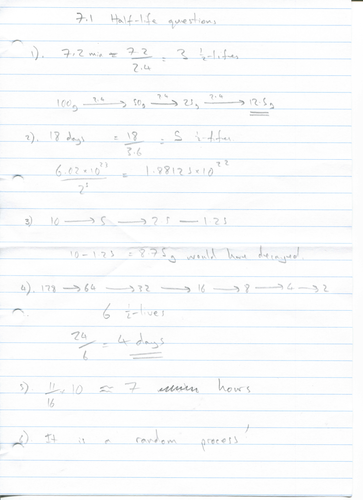 7.1 Half-life questions
1). 7.2 min = 7.2/2.4 = 3 ½-lifes
100g →2.4 50g →2.4 25g →2.4 12.5g
2). 18 days = 18/3.6 = 5 ½-lifes
6.02×10²³/2⁵ = 1.88125×10²²
3) 10 → 5 → 2.5 → 1.25
10 - 1.25 = 8.75g would have decayed
4). 128 → 64 → 32 → 16 → 8 → 4 → 2
6 ½-lives
24/6 = 4 days
5) 11/16 × 10 ≈ 7 hours
6) It is a random process!